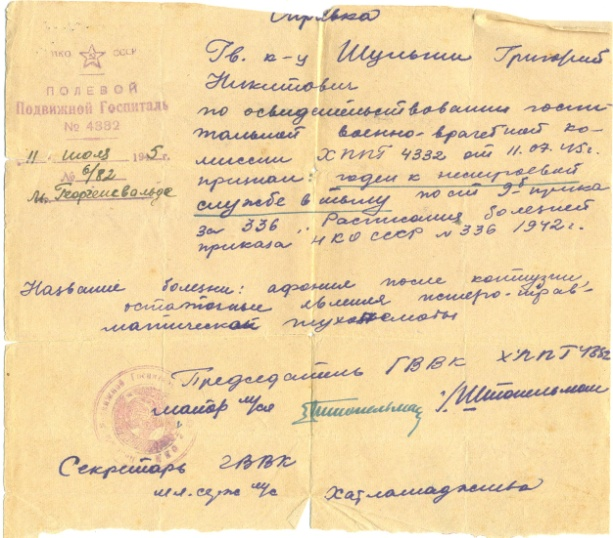 Справка
НКО СССР
ПОЛЕВОЙ
Подвижной Госпиталь
№ 4382
11 июля 1945г.
№ 6/82
Георгенсвальде
Гв. к-у Шульги Григорий
Никитович
по освидетельствовании госпи
тальной военно-врачебной ко-
миссии ХППГ 4332 от 11.07.45г.
признан: годен к нестроевой
службе в тылу по ст 9-б пункта
за 336 .. Расписания болезней
приказа НКО СССР № 336 1942 г.
Название болезни: афония после контузии,
остаточные явления истеро-трав-
матической глухонемоты
Председатель ГВВК ХППГ 4382
майор м/с Штопельман /Штопельман
Секретарь ГВВК
мл. серж м/с